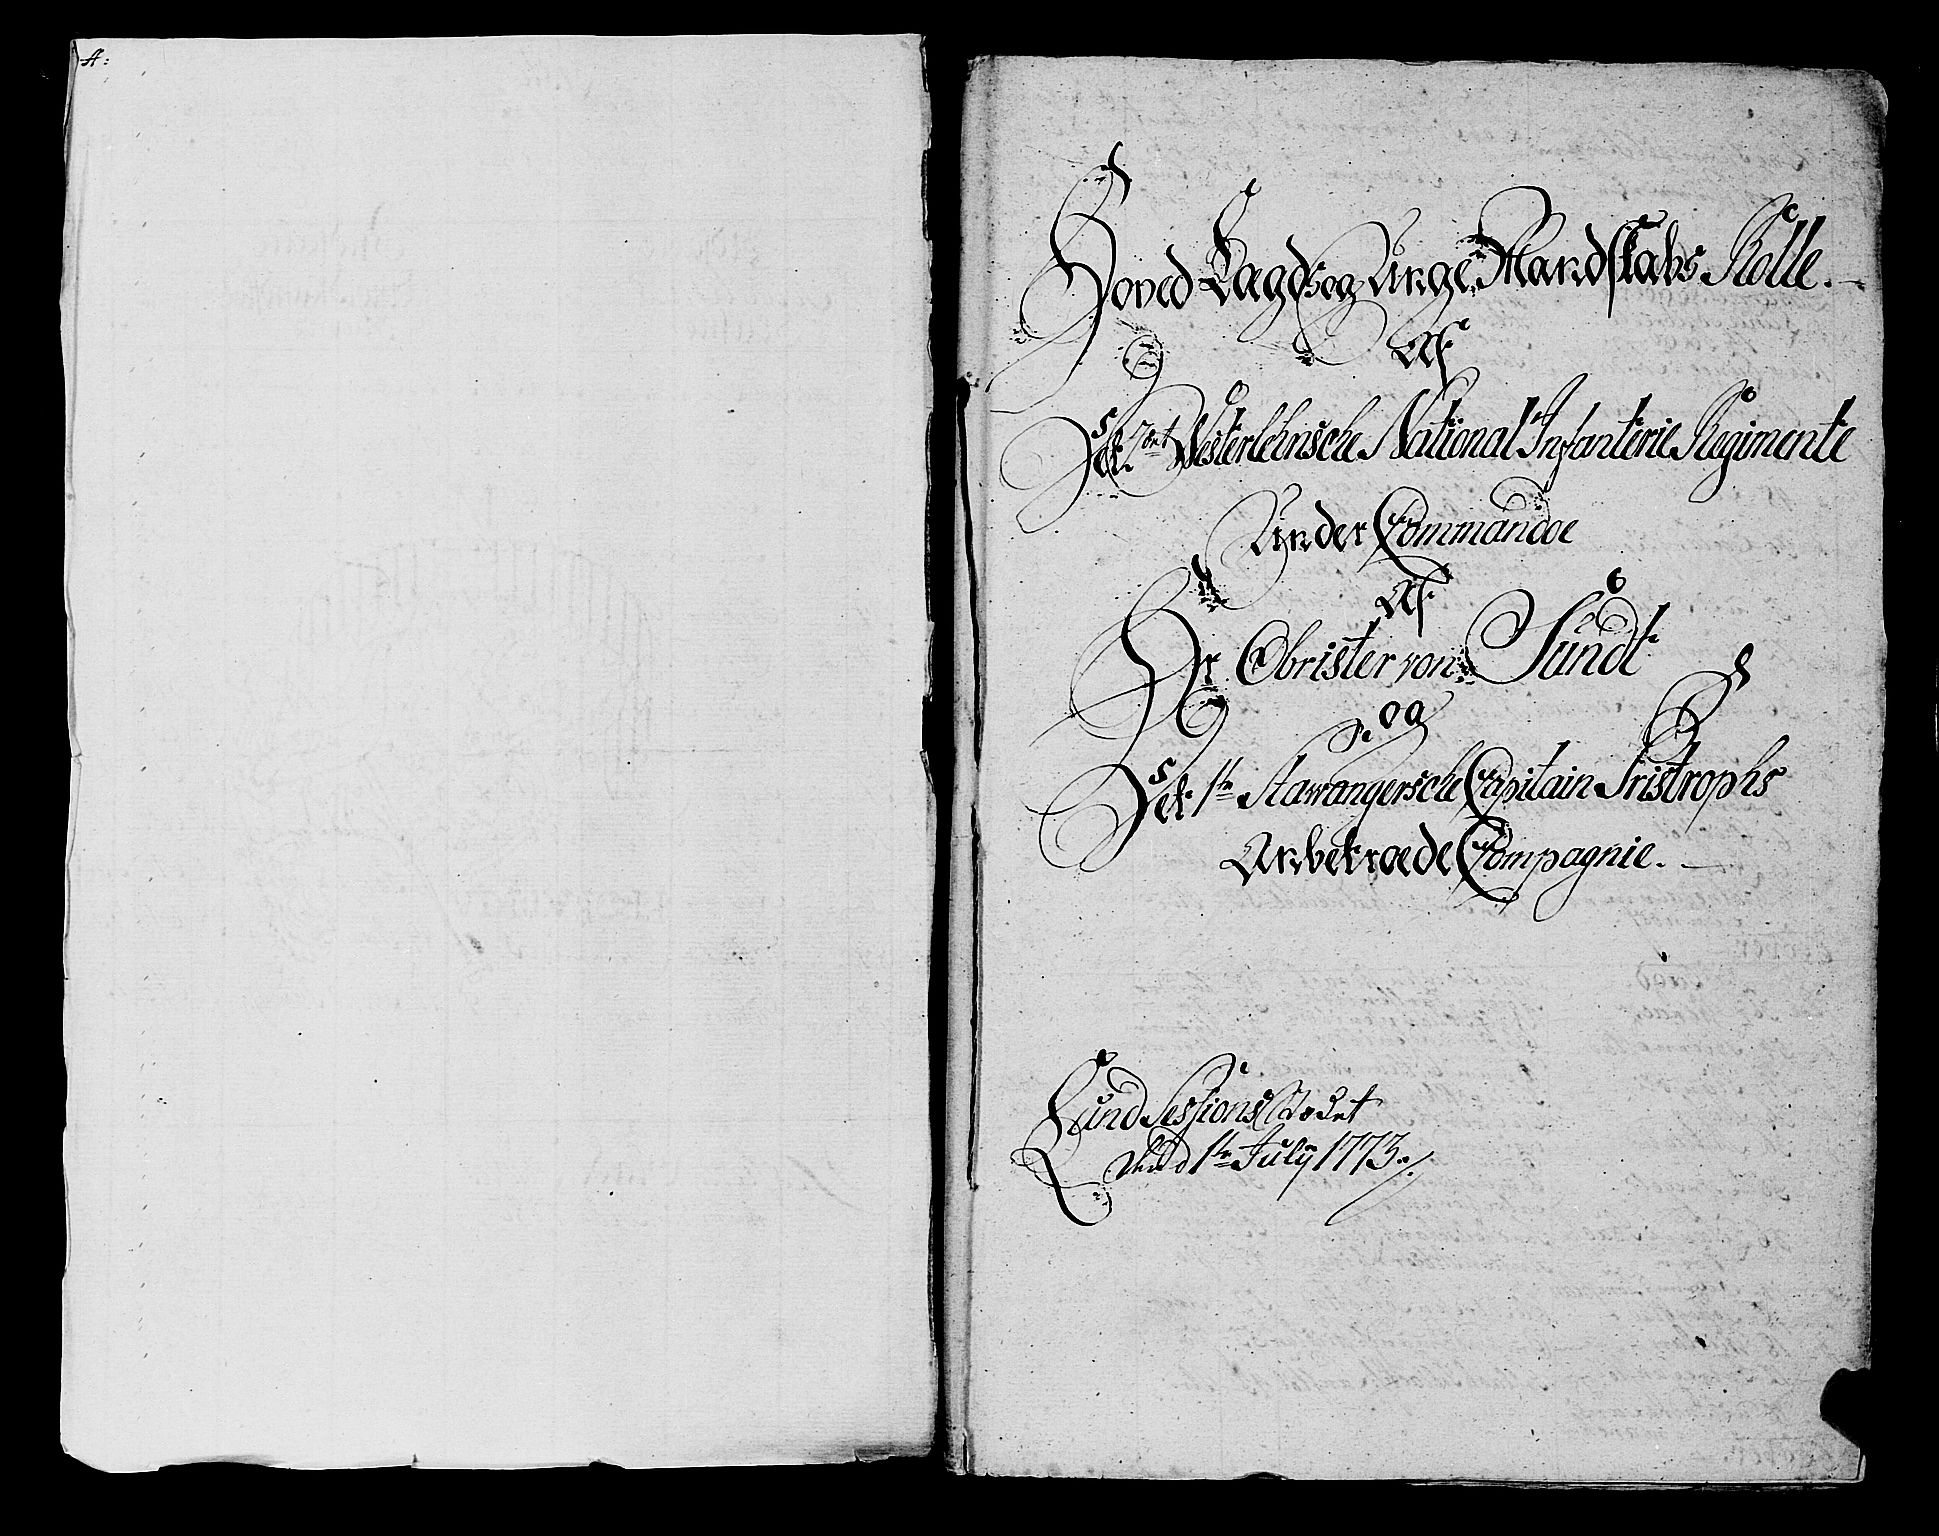 A:
Hoved Lagds og Unge Mandskabs Rolle.
Af
Det 2det Westerlehnsche National Infanterie Regimente
Under Commandoe
Af
Hr Obrister von Sundt
og
Det 1te Stawangersche Capitain Tristrophs
Anbetroede Compagnie.
Lund Sessions Stædet
den 1te July 1773.